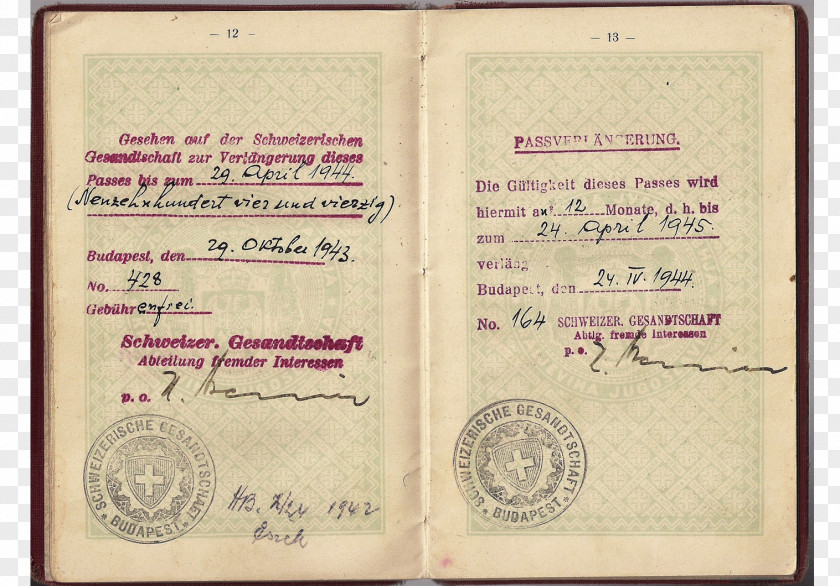 – 12 –
Gesehen auf der Schweizerischen
Gesandtschaft zur Verlängerung dieses
Passes bis zum 29. April 1944.
(Neuzehnhundert vier und vierzig)
Budapest, den 29. Oktober 1943.
No. 428
Gebührenfrei.
Schweizer. Gesandtschaft
Abteilung fremder Interessen
p. o.
SCHWEIZERISCHE GESANDTSCHAFT
* BUDAPEST *
1942
– 13 –
PASSVERLÄNGERUNG.
Die Gültigkeit dieses Passes wird
hiermit auf 12 Monate, d. h. bis
zum 24. April 1945.
verläng
Budapest, den 24. IV. 1944.
No. 164 SCHWEIZER. GESANDTSCHAFT
Abtlg. fremde Interessen
p. o.
SCHWEIZERISCHE GESANDTSCHAFT
* BUDAPEST *